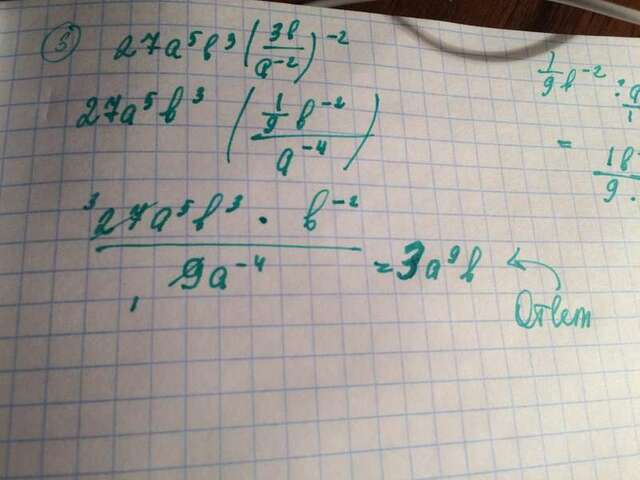 ⑤ 27a⁵b³ (3b/a⁻²)⁻²
27a⁵b³ (1/9 b⁻² / a⁻⁴)
³27a⁵b³ · b⁻² / 9a⁻⁴ = 3a⁹b ← Ответ
1/9 b⁻² :
= 1b / 9 ·